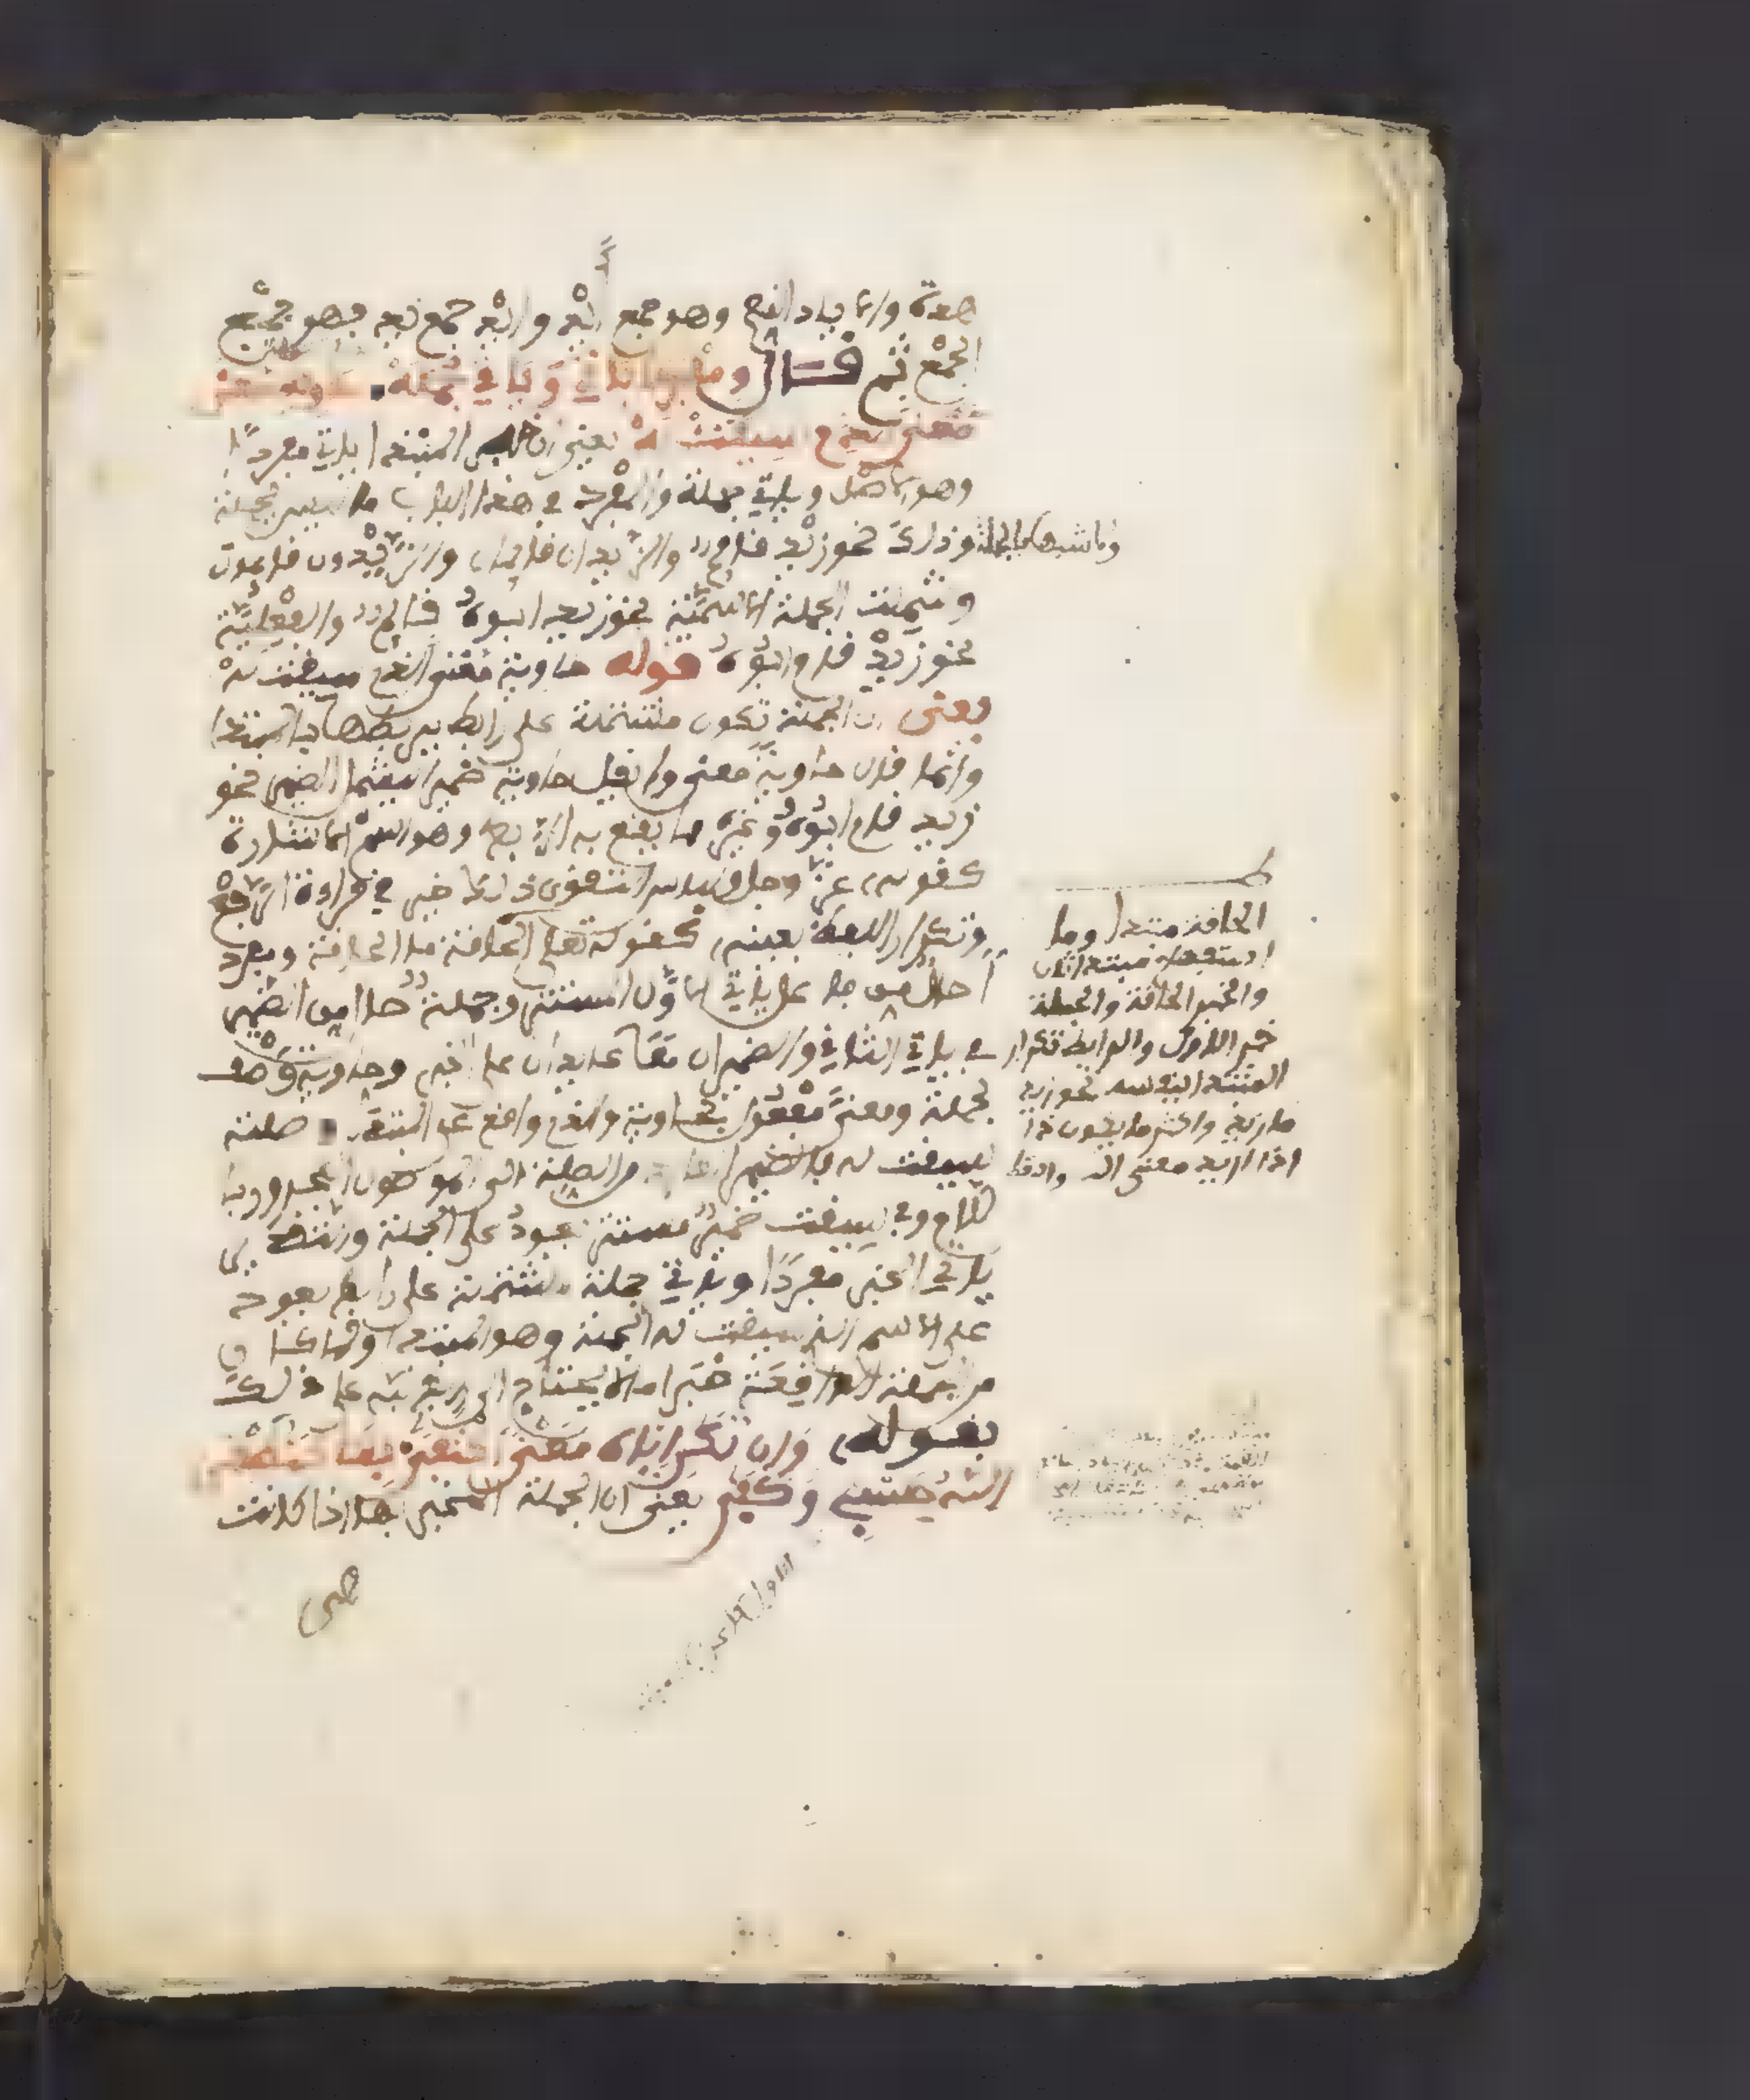 هدة والاياد النعم وهو جمع أيد وأيد جمع يد فهو جمع
الجمع ثم قال ومفردا ياتي وياتي جمله حاوية
معنى الذي سيقت له يعني ان خبر المبتدا ياتي مفردا
وهو الاصل وياتي جملة والمفرد في هذا الباب ما ليس بجملة
وما شبهها بالجملة وذلك نحو زيد قايم والزيدان قايمان والزيدون قايمون
وشملت الجملة الاسمية نحو زيد ابوه قايم والفعلية
نحو زيد قام ابوه قوله حاوية معنى الذي سيقت له
يعني ان الجملة تكون مشتملة على رابط يربطها بالمبتدا
وانما قال حاوية معنى ولم يقل حاوية ضمير ليشمل الضمير نحو
زيد قام ابوه وغيره مما يقع به الربط وهو اسم الاشارة
كقوله عز وجل ولباس التقوى ذلك خير في قراءة الرفع
وتكرار اللفظ بعينه كقوله تعلى الحاقة ما الحاقة ومفردا
حال من فاعل ياتي الاول المستتر وجملة حال من الضمير
في ياتي الثاني والضميران معا عايدان على الخبر وحاوية وصف
لجملة ومعنى مفعول بحاوية والذي واقع على المبتدا صلته
سيقت له والضمير من الصلة الى الموصول المجرور با
للام وفي سيقت ضمير مستتر يعود على الجملة والتقدير
ياتي الخبر مفردا وياتي جملة مشتملة على رابط يعود
على الاسم الذي سيقت له الجملة وهو المبتدا ولما كان
من الجملة الواقعة خبرا ما لا يحتاج الى رابط نبه على ذلك
بقوله وان تكن اياه معنى اكتفى بها كنطقي
الله حسبي وكفى يعني ان الجملة المخبر بها اذا كانت
هي
الحاقة مبتدا وما
استفهام مبتدا ثان
والخبر الحاقة والجملة
خبر الاول والرابط تكرار
المبتدا بنفسه نحو زيد
ما زيد واكثر ما يكون ذا